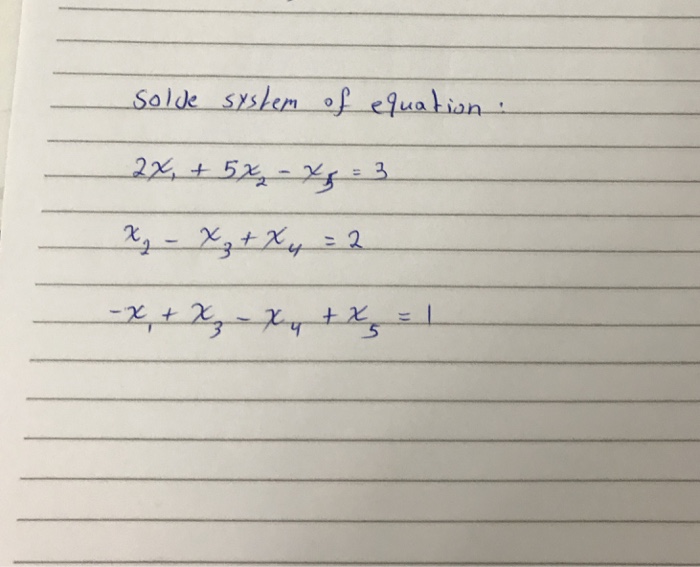 Solve system of equation :
2x₁ + 5x₂ - x₅ = 3
x₂ - x₃ + x₄ = 2
-x₁ + x₃ - x₄ + x₅ = 1